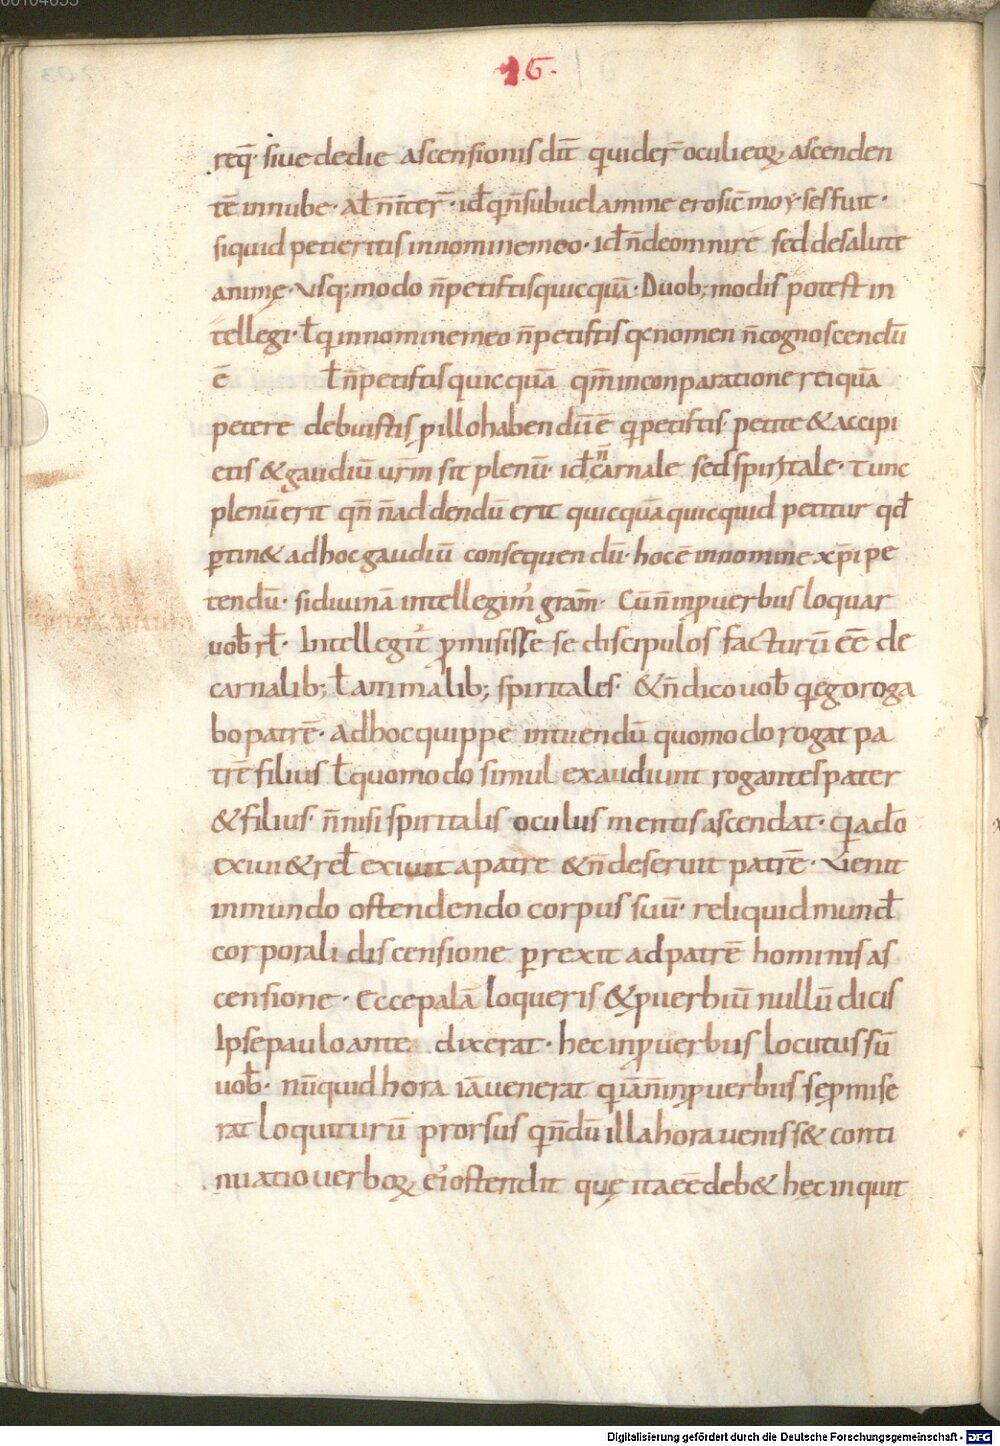 00104055
203
16.
req̄· siue dedie ascensionis dix̄ qui uider̄ oculi eoꝝ ascenden
tē in nube· al̄ n̄ inter̄· id ̄ qn̄ sub uelamine erosic̄ moẏses fuit·
siquid petieritis in nomine meo· id ̄ n̄ de omni re sed de salute
animę· usq; modo n̄ petistis quicquā· Duob; modis potest in
tellegi· ł q in nomine meo n̄ petistis q nomen n̄ cognoscendū
ē ł n̄ petistis quicquā qm̄ in conparatione rei quā
petere debuistis p illo habendū ē q petistis· petite & accipi
etis & gaudiū ur̄m sit plenū· id ̄ n̄ carnale sed spiritale· tunc
plenū erit qn̄ n̄ addendū erit quicquā quicquid petitur qd ̄
ꝑtin& ad hoc gaudiū consequendū· hoc ē in nomine xp̄i pe
tendū· si diuinā intellegim᾽ gram̄· Cū n̄ in ꝓuerbiis loquar
uob̄ rł· Intellegit᾽ ꝓmisisse se discipulos facturū ēē de
carnalib; ł animalib; spiritales· & n̄ dico uob̄ q ego roga
bo patrē· ad hoc quippe intuendū quomodo rogat pa
trē filius ł quomodo simul exaudiunt rogantes pater
& filius· n̄ nisi spiritalis oculus mentis ascendat· q a dō
exiui & reł exiuit a patre & n̄ deseruit patrē· Uenit
in mundo ostendendo corpus suū· reliquid mund ̄
corporali discensione ꝑrexit ad patrē hominis as
censione· Ecce palā loqueris & ꝓuerbiū nullū dicis
Ipse paulo ante dixerat· hec in ꝓuerbiis locutus sū
uob̄· nūquid hora iā uenerat q iā n̄ in ꝓuerbiis se ꝓmise
rat loquiturū prorsus qn̄dū illa horaueniss& conti
nuatio uerboꝝ ei᾽ ostendit quę ita ēē deb& hęc inquit
Digitalisierung gefördert durch die Deutsche Forschungsgemeinschaft - DFG